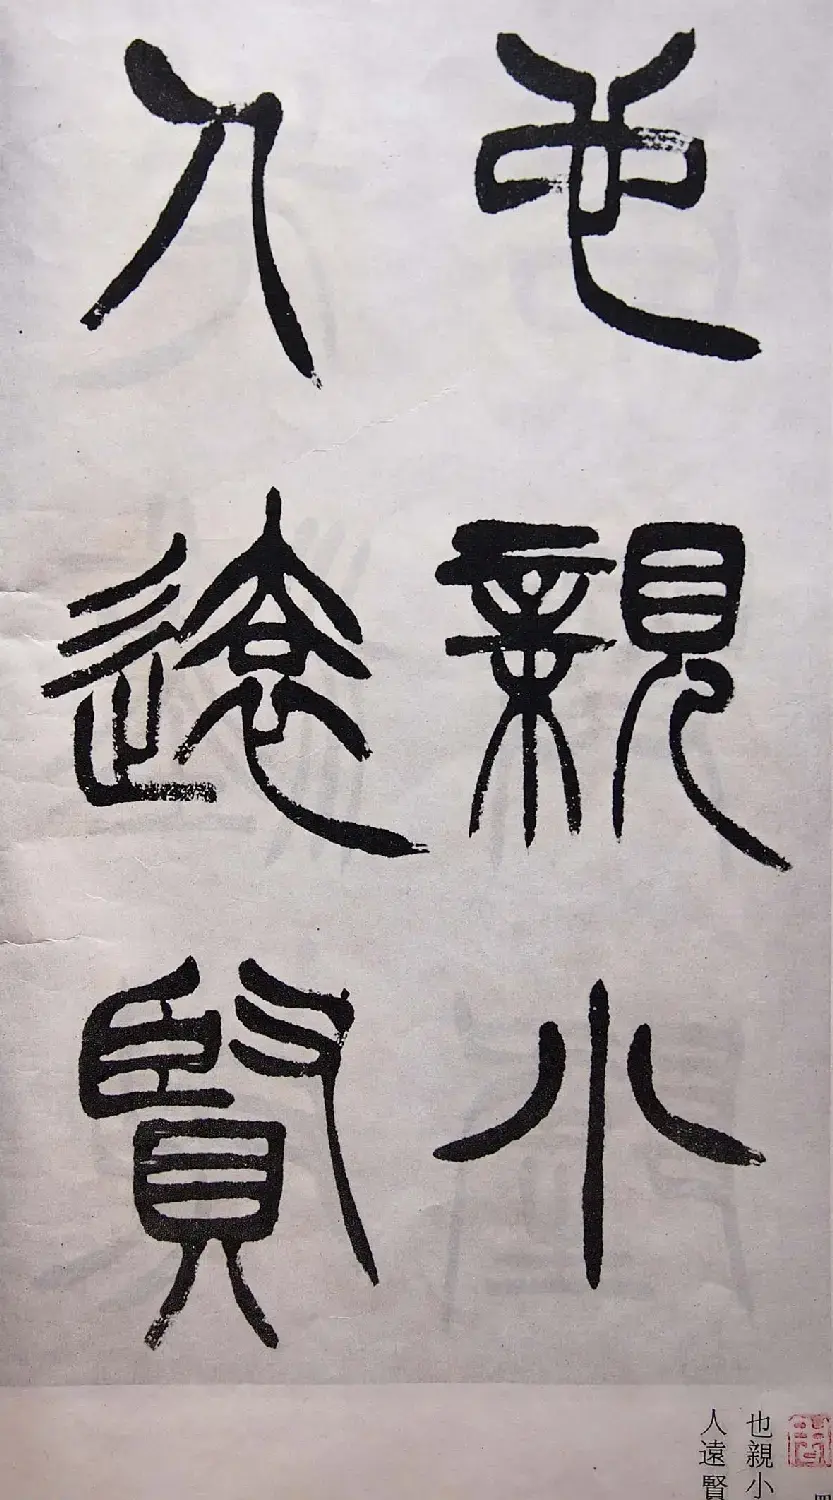 也親小
人遠賢
也親小
人遠賢